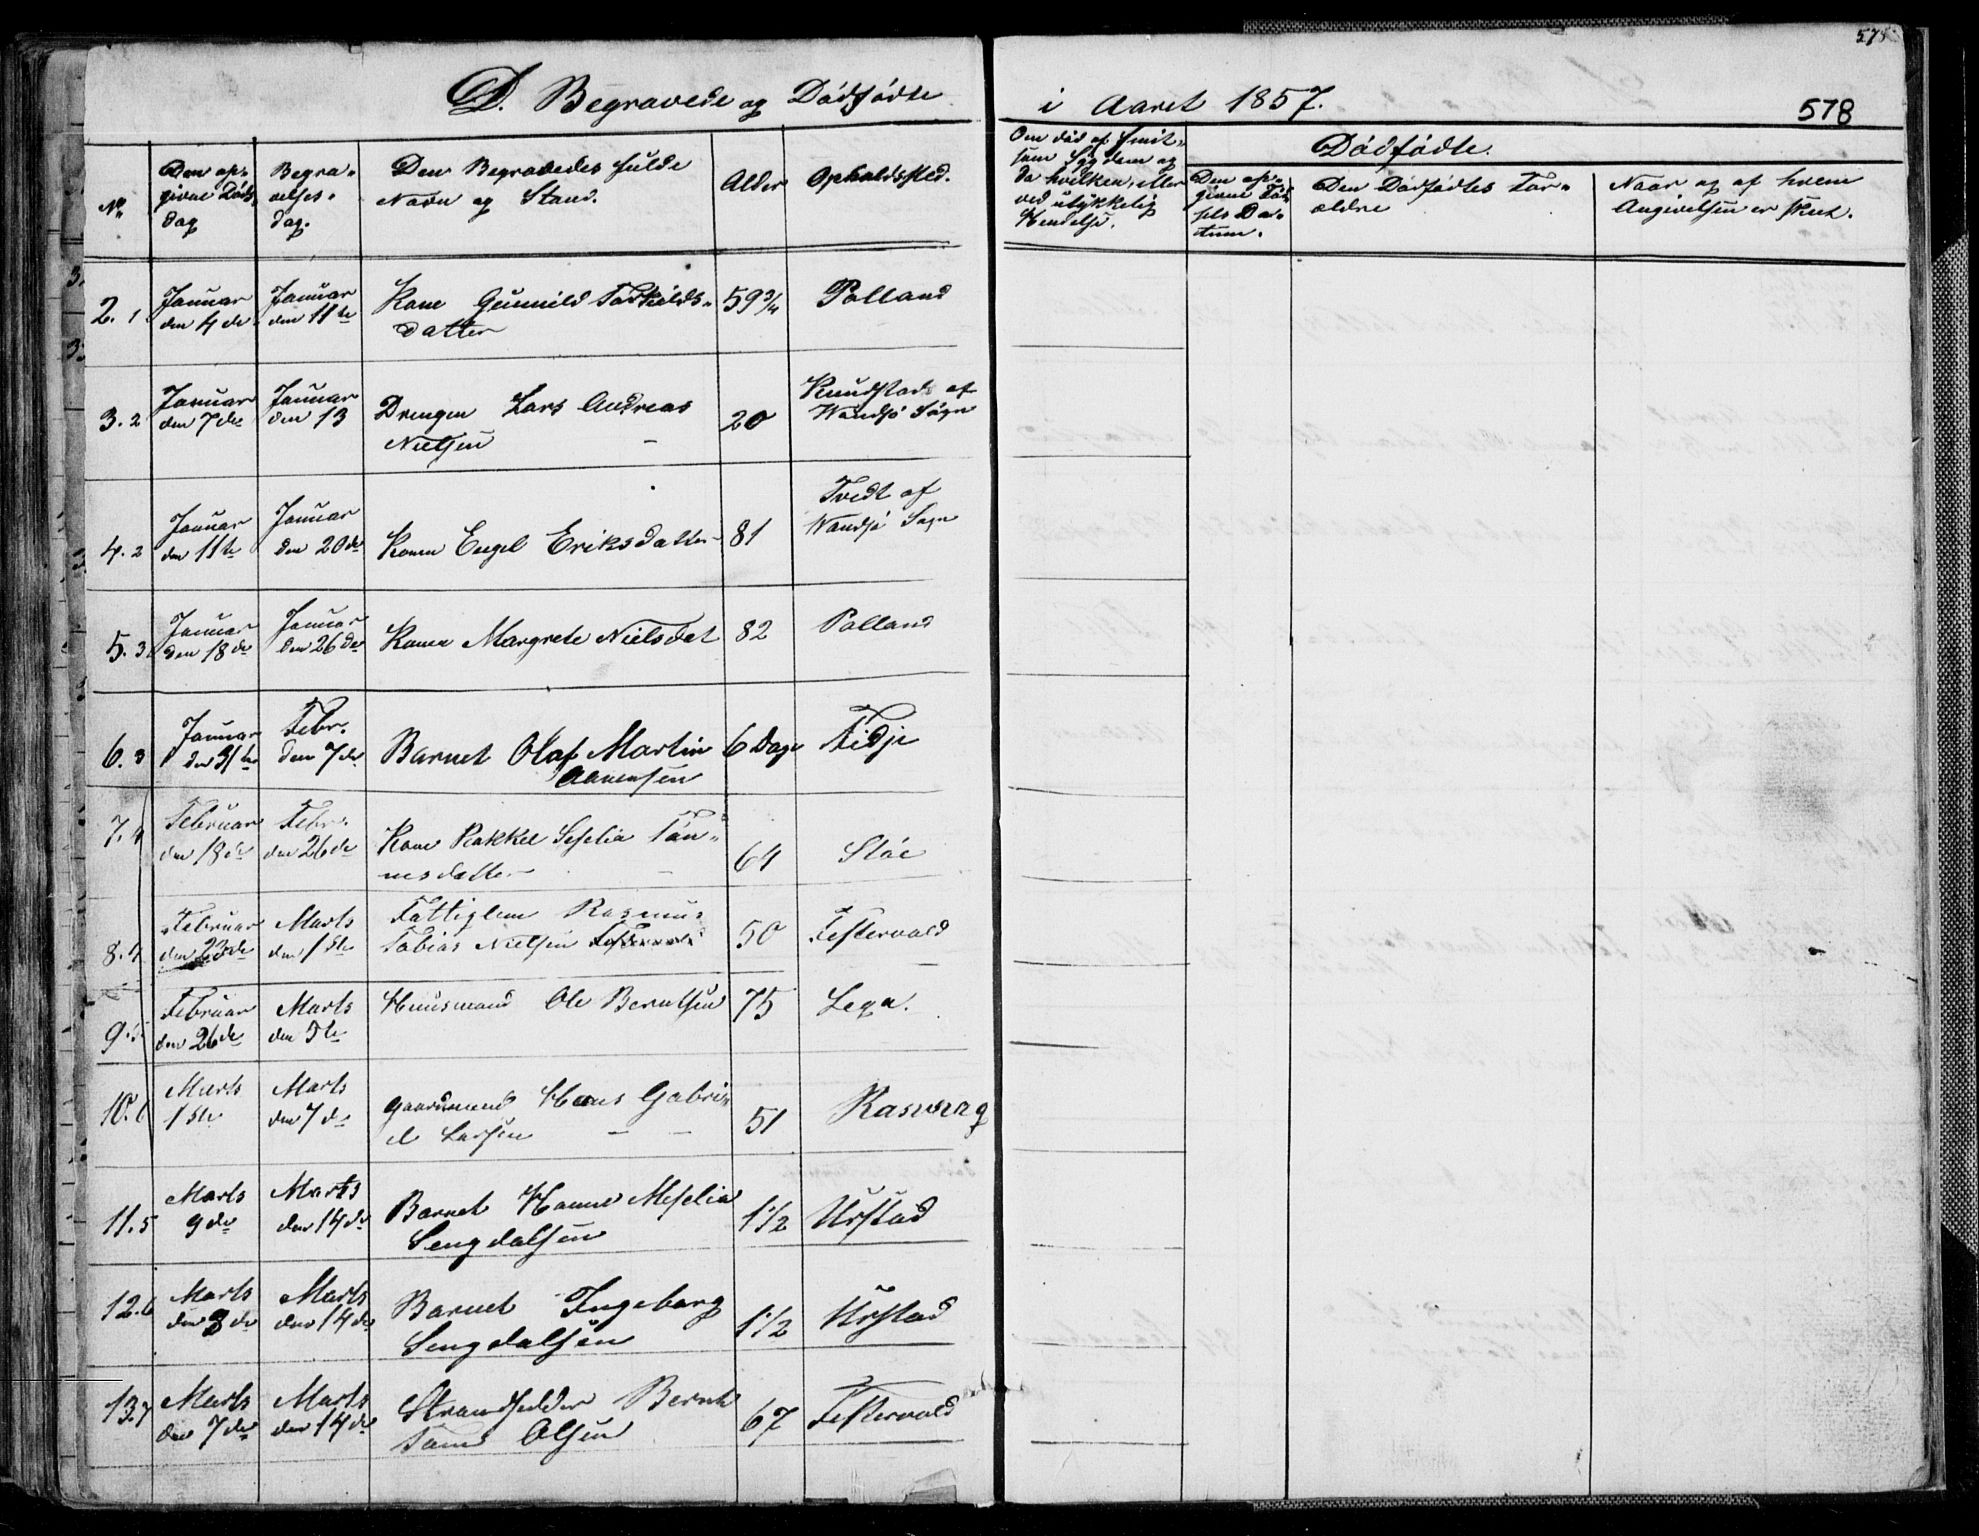 575
D. Begravede og Dødfødte
i Aaret 1857.
578
No
Den op-
givne Døds
dag
Begra-
velses-
dag.
Den Begravedes fulde
Navn og Stand.
Alder
Opholdssted.
Om død af Smit-
som Sygdom og
da hvilken, eller
ved ulykkelig
Hendelse.
Dødfødte.
Den op-
givne Fød
sels Da-
tum.
Den Dødfødtes For-
ældre
Naar og af hvem
Angivelsen er skeet.
2. 1
Januar
den 4de
Januar
den 11te
Kone Gunnild Torkilds-
datter
59 3/4
Polland
3. 2
Januar
den 7de
Januar
den 13
Drengen Lars Andreas
Nielsen
20
Knudstad af
Wandsø Sogn
4. 2
Januar
den 11te
Januar
den 20de
Konen Engel Eriksdatter
81
Tvedt af
Wandsø Sogn
5. 3
Januar
den 18de
Januar
den 26de
Konen Margrete Nielsdat
82
Polland
6. 3
Januar
den 31te
Febr.
den 7de
Barnet Olaf Martin
Aanensen
6 Dage
Fidje
7. 4
Februar
den 18de
Febr.
den 26de
Kone Rakkel Seselia Tøn-
nesdatter
64
Støe
8. 4
Februar
den 23de
Marts
den 1ste
Fattiglem Rasmus
Tobias Nielsen
50
Festervold
9. 5
Februar
den 26de
Marts
den 5te
Huusmand Ole Berntsen
75
Lega.
10. 6
Marts
1ste
Marts
den 7de
Gaardmand Hans Gabri-
el Larsen
51
Rasvaag
11. 5
Marts
9de
Marts
den 14de
Barnet Hanne Meselia
Sengdalsen
1 1/2
Urstad
12. 6
Marts
den 8de
Marts
den 14de
Barnet Ingeborg
Sengdalsen
1 1/2
Urstad
13. 7
Marts
den 7de
Marts
den 14de
Strandsidder Bernt
Olsen
67
Festervold